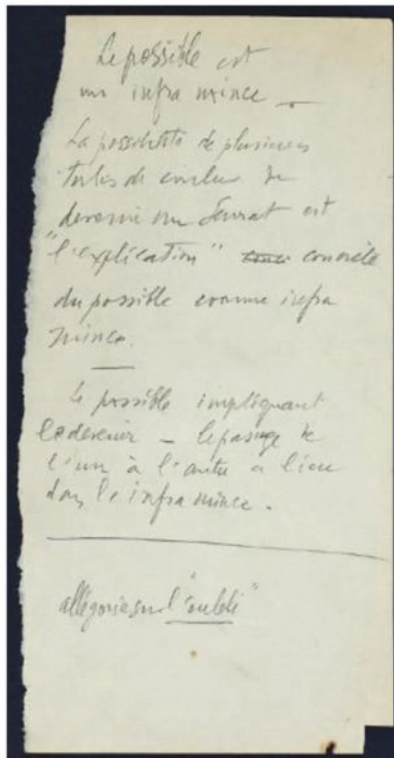 Le possible est
un infra mince _
La possibilité de plusieurs
tubes de couleur de
devenir un Seurat est
"l'explication" concrète
du possible comme infra
mince.
Le possible impliquant
le devenir – le passage de
l'un à l'autre a lieu
dans l'infra mince.
allégorie sur l'"oubli"